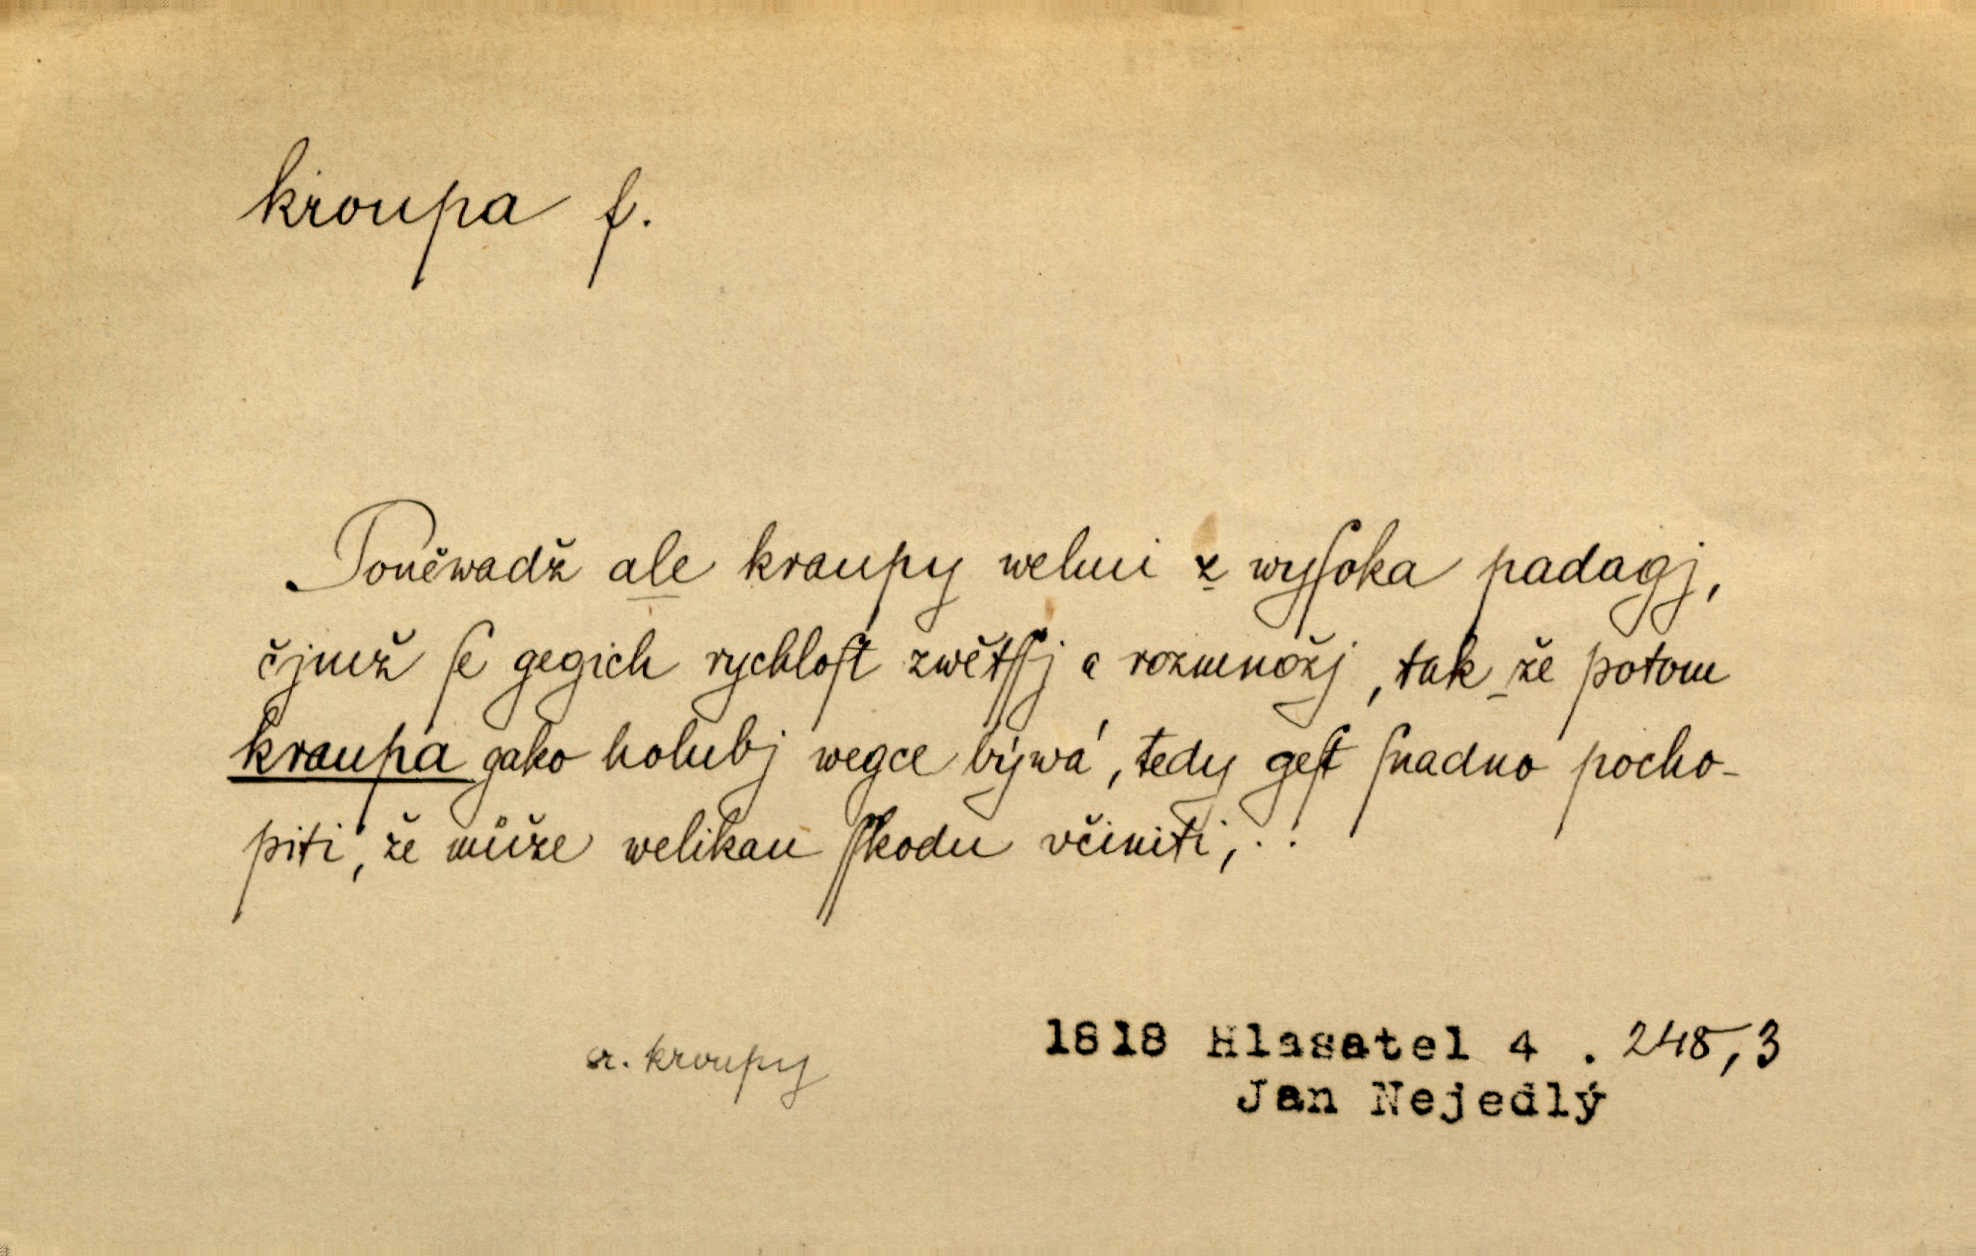 kroupa f.
Poněwadž ale kraupy welmi z wyſoka padagj,
čjmž ſe gegich rychloſt zwětſſj a rozmnožj, tak že potom
kraupa gako holubj wegce býwá, tedy geſt ſnadno pocho-
piti, že může welikau ſſkodu včiniti, ..
1818 Hlasatel 4 . 248, 3
a. kroupy
Jan Nejedlý